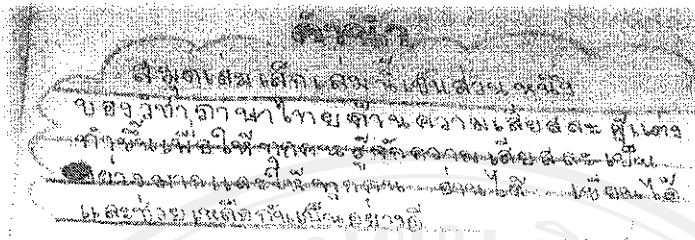 คำนำ
สมุดเล่มเล็กเล่มนี้เป็นส่วนหนึ่ง
ของวิชาภาษาไทยด้านความเสียสละ ผู้แต่ง
ทำขึ้นเพื่อให้ทุกคนรู้จักความเสียสละเป็น
อย่างมากและให้ทุกคน อ่านได้ เขียนได้
และช่วยเหลือกันเป็นอย่างดี